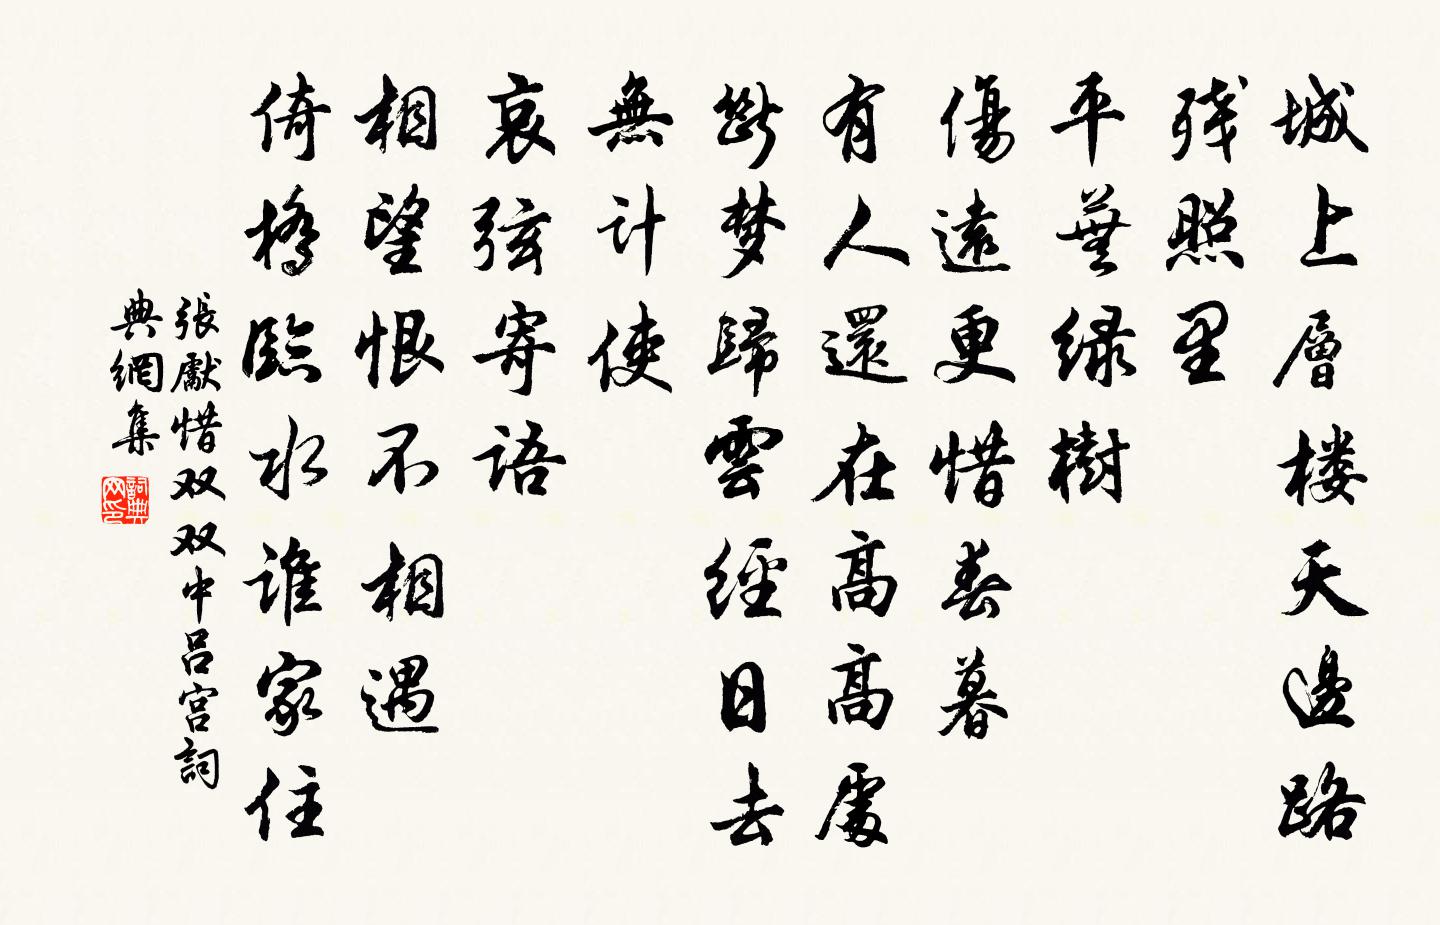 城上層楼天邊路
残照里
平蕪绿樹
傷遠更惜春暮
有人還在高高處
断梦歸雲經日去
無计使
哀弦寄语
相望恨不相遇
倚橋臨水谁家住
張獻惜双双中吕宫詞
典網集
詞典
网